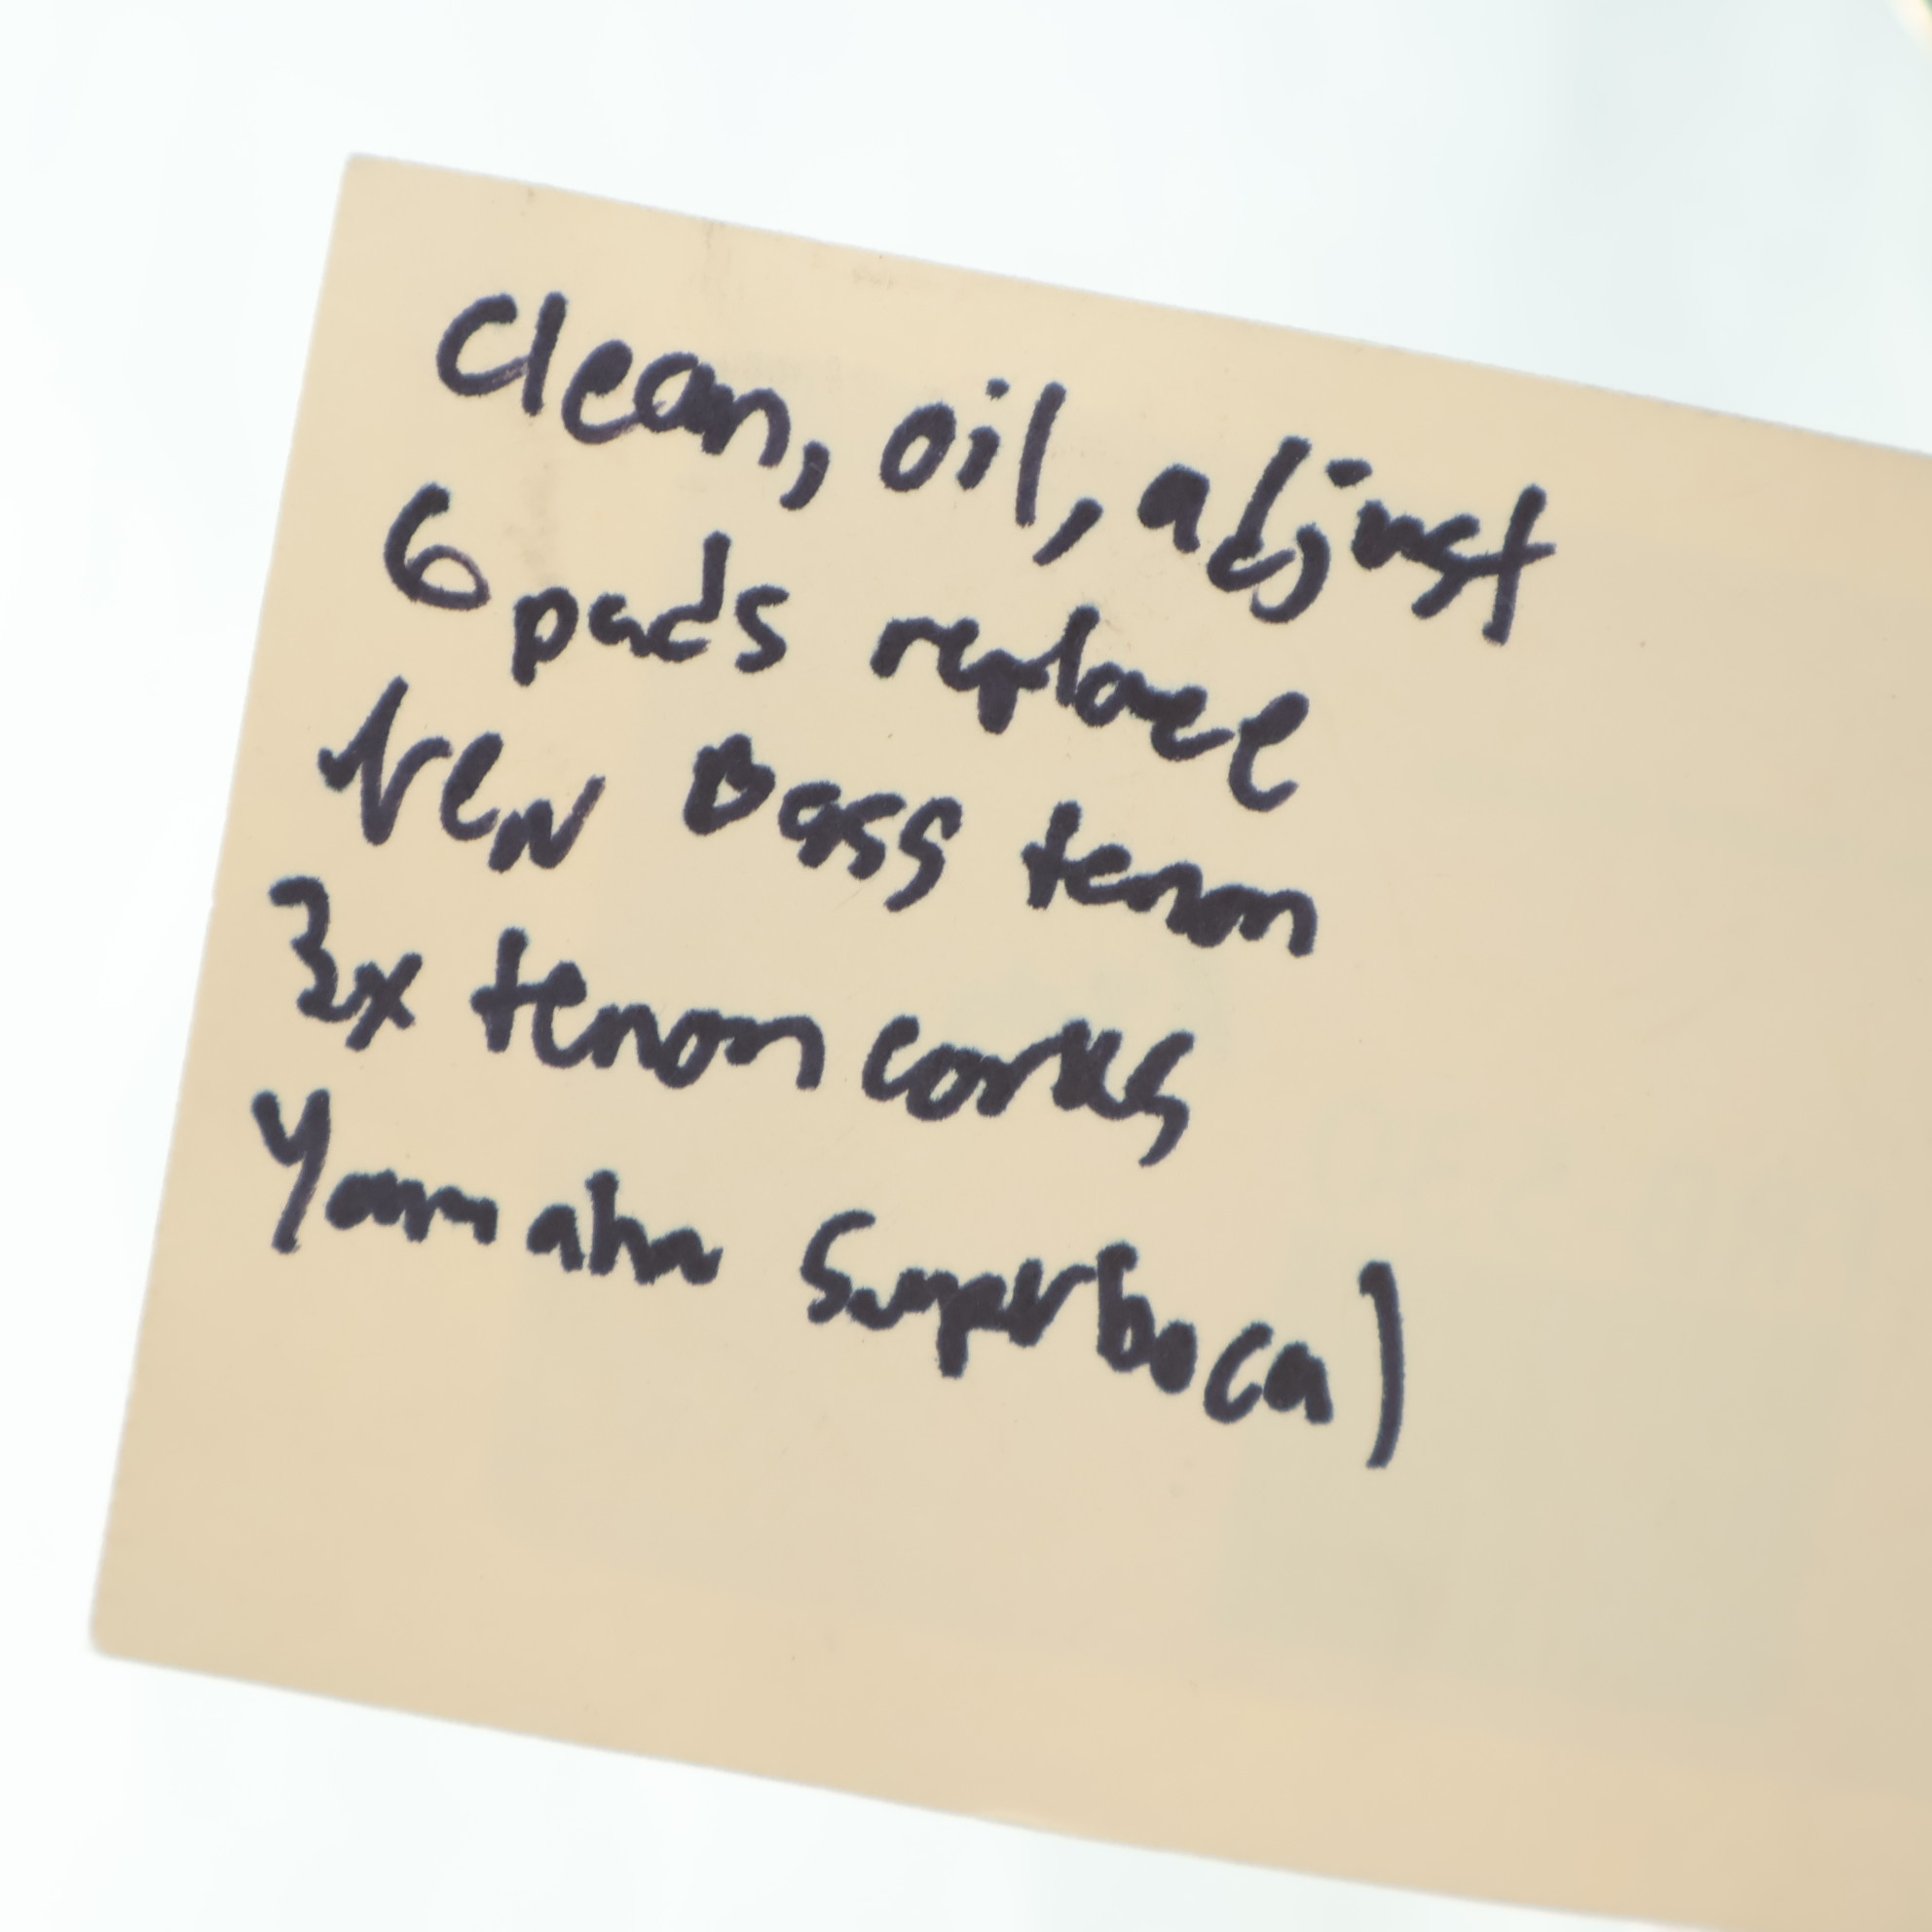 Clean, oil, adjust
6 pads replace
New Bass tenon
3x tenon corks
Yamaha Superbocal